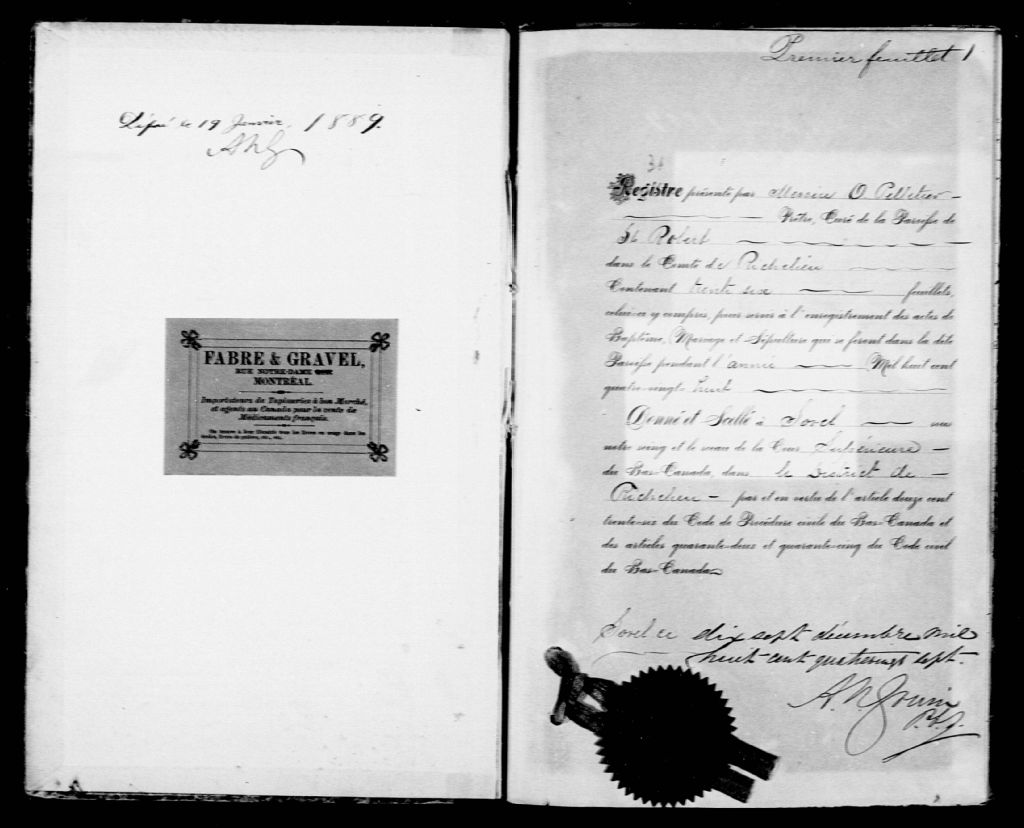 Déposé le 19 Janvier. 1889.
FABRE & GRAVEL,
RUE NOTRE-DAME
MONTRÉAL.
Importateurs de Tapisseries à bon Marché,
et agents au Canada pour la vente de
Médicaments français.
Premier feuillet 1
Registre présenté par Messire O Pelletier
Prêtre, Curé de la Paroisse de
St Robert
dans le Comté de Richelieu
Contenant trente six feuillets,
celui-ci y compris, pour servir à l'enregistrement des actes de
Baptême, Mariage et Sépulture que se feront dans la dite
Paroisse pendant l'année Mil huit cent
quatre-vingt huit
Donné et Scellé à Sorel sous
notre seing et le sceau de la Cour Supérieure
du Bas-Canada, dans le District de
Richelieu par et en vertu de l'article douze cent
trente-six du Code de Procédure civile du Bas-Canada et
des articles quarante-deux et quarante-cinq du Code civil
du Bas-Canada
Sorel ce dix sept décembre mil
huit cent quatrevingt sept.